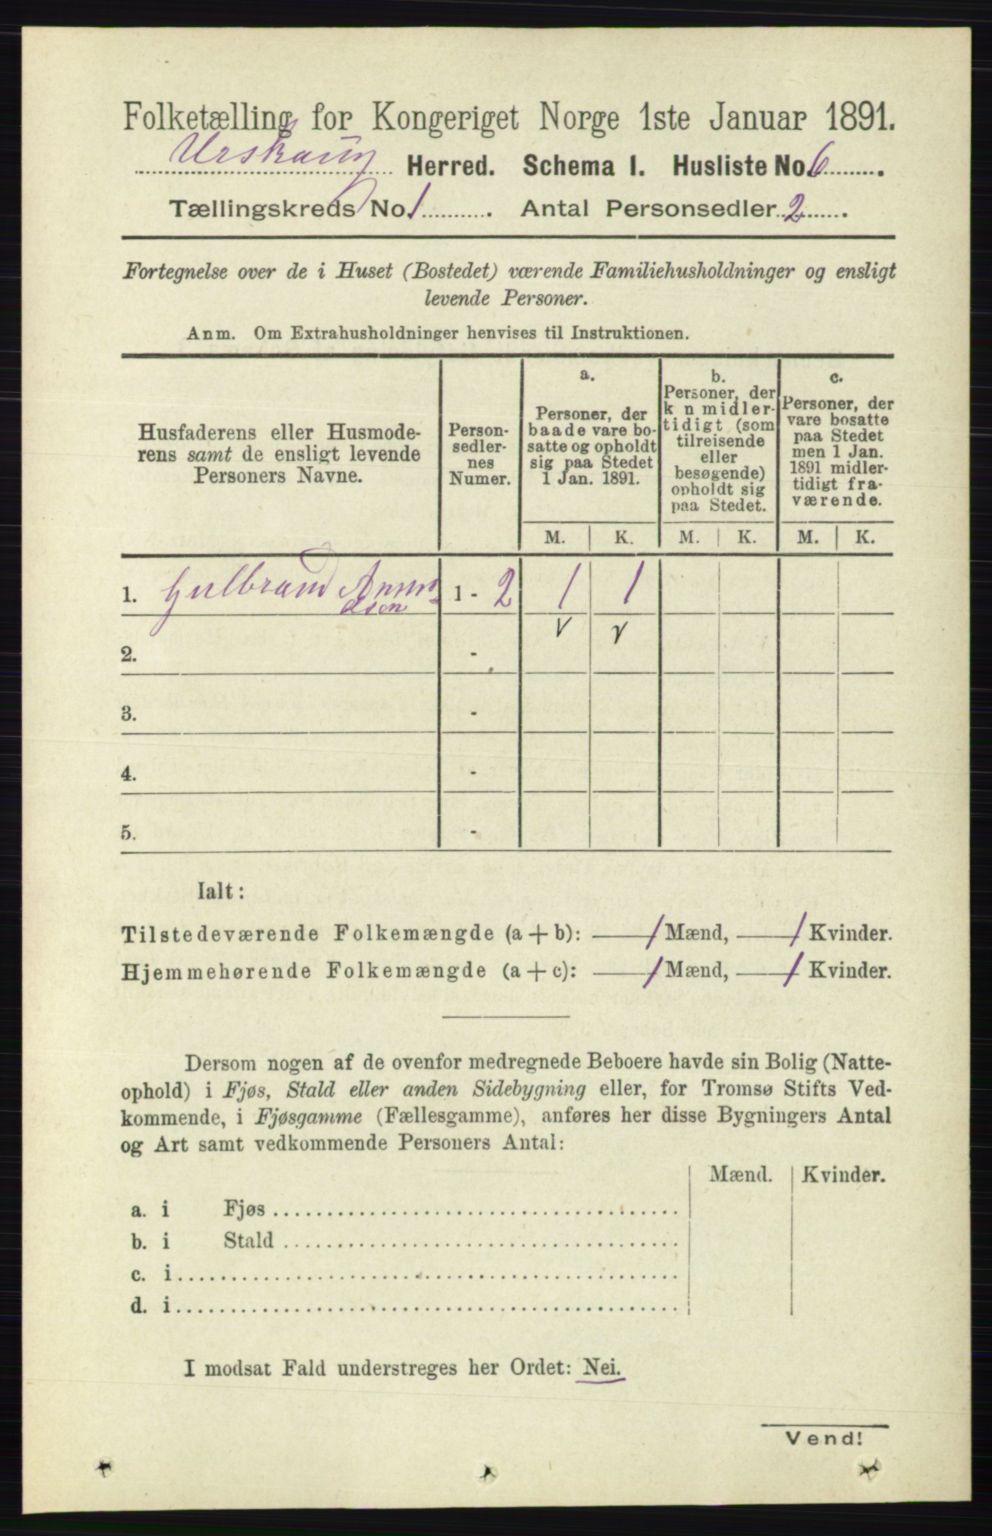 Folketælling for Kongeriget Norge 1ste Januar 1891.
Urskaug Herred. Schema I. Husliste No. 6
Tællingskreds No. 1. Antal Personsedler 2.
Fortegnelse over de i Huset (Bostedet) værende Familiehusholdninger og ensligt
levende Personer.
Anm. Om Extrahusholdninger henvises til Instruktionen.
Husfaderens eller Husmode-
rens samt de ensligt levende
Personers Navne.
Person-
sedler-
nes
Numer.
a.
Personer, der
baade vare bo-
satte og opholdt
sig paa Stedet
1 Jan. 1891.
b.
Personer, der
k n midler-
tidigt (som
tilreisende
eller
besøgende)
opholdt sig
paa Stedet.
c.
Personer, der
vare bosatte
paa Stedet
men 1 Jan.
1891 midler-
tidigt fra-
værende.
M. K. M. K. M. K.
1. Gulbrand 1 - 2 1 1
dsen
2. - v v
3. -
4. -
5. -
Ialt:
Tilstedeværende Folkemængde (a + b): 1 Mænd, 1 Kvinder.
Hjemmehørende Folkemængde (a + c): 1 Mænd, 1 Kvinder.
Dersom nogen af de ovenfor medregnede Beboere havde sin Bolig (Natte-
ophold) i Fjøs, Stald eller anden Sidebygning eller, for Tromsø Stifts Ved-
kommende, i Fjøsgamme (Fællesgamme), anføres her disse Bygningers Antal
og Art samt vedkommende Personers Antal:
Mænd. Kvinder.
a. i Fjøs
b. i Stald
c. i
d. i
I modsat Fald understreges her Ordet: Nei.
Vend!